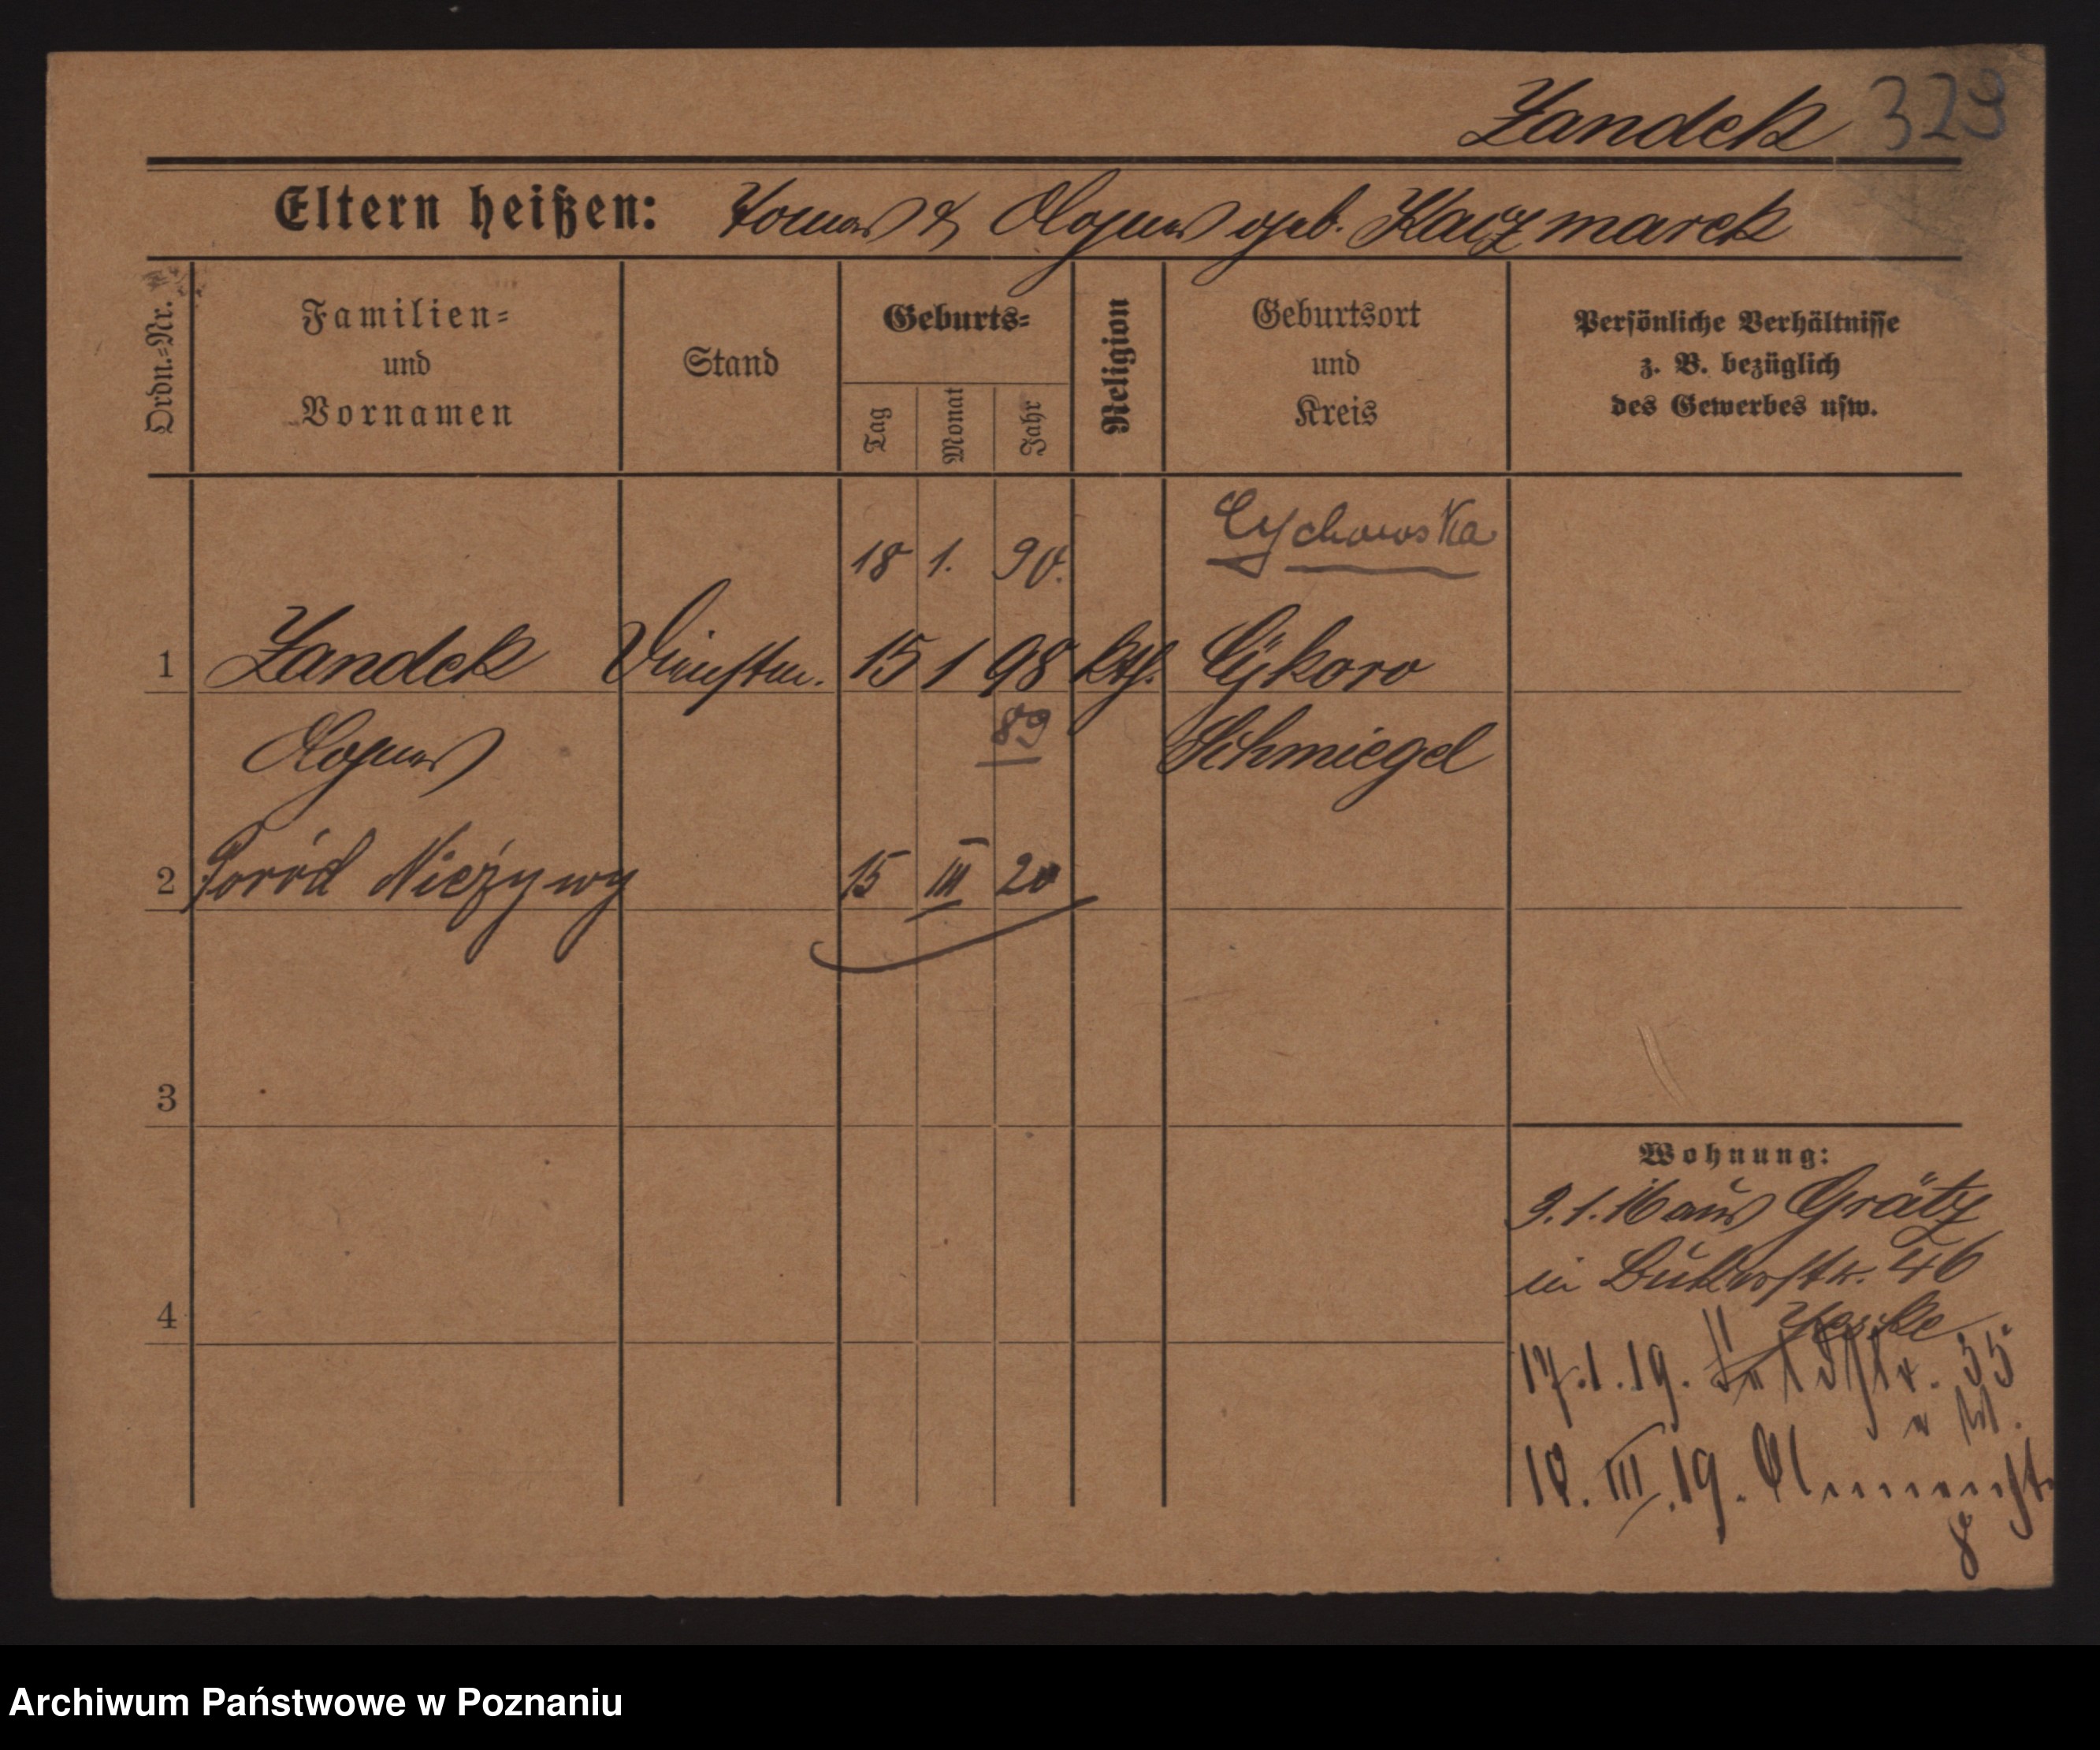 Zandek 329
Eltern heißen: Tomas & Agnes geb. Kaczmarek
Ordn.=Nr.
Familien=
und
Vornamen
Stand
Geburts=
Tag
Monat
Jahr
Religion
Geburtsort
und
Kreis
Persönliche Verhältnisse
z. B. bezüglich
des Gewerbes usw.
Cychowska
18 1. 90.
1 Zandek Dienstm. 15 1 98 kth. Cykowo
Agnes 89 Schmiegel
2 Poród Nieżywy 15 III 20
3
Wohnung:
9.1.16 aus Grätz
in Bukerstr. 46
4
Jeske
17.1.19. 35
18. III. 19.
8
Archiwum Państwowe w Poznaniu